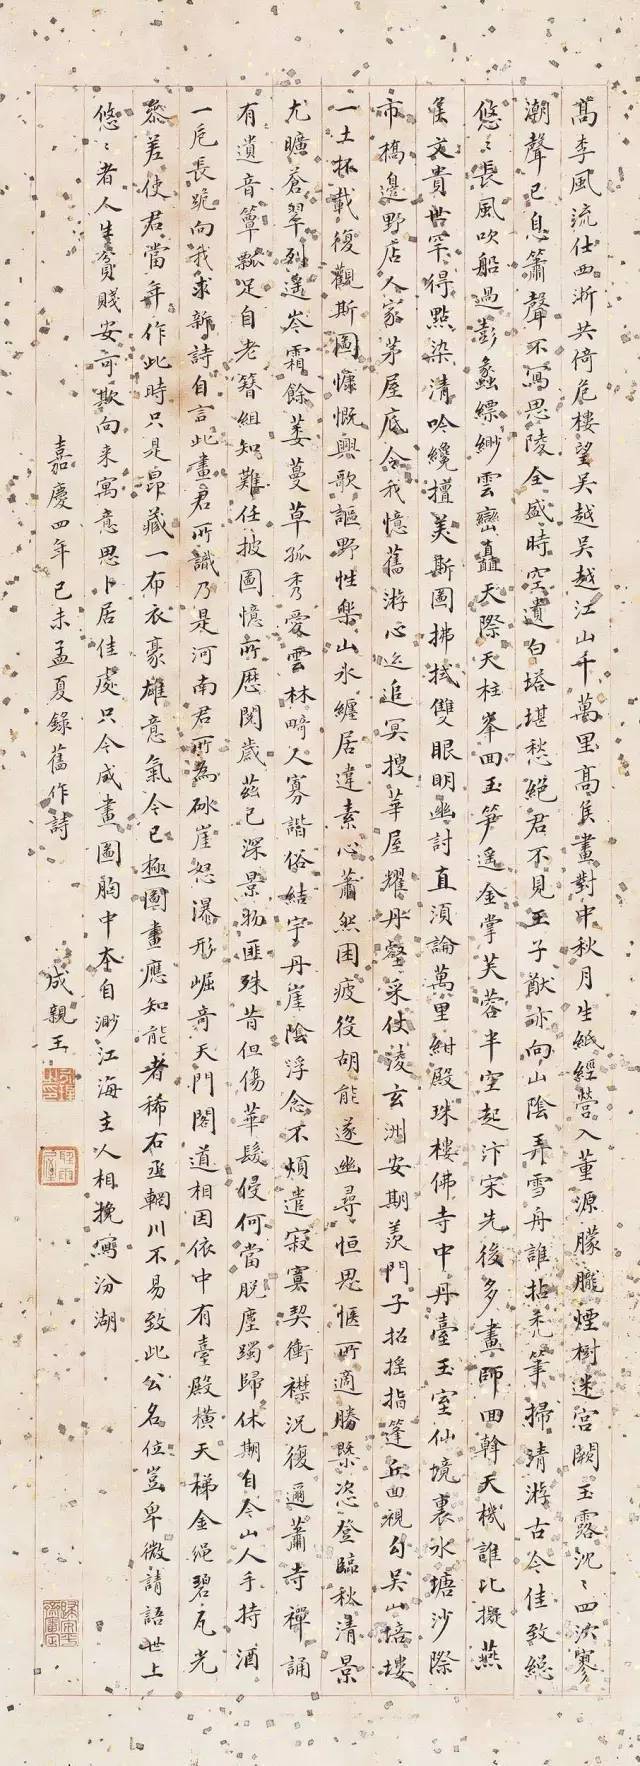 高李風流仕西浙共倚危樓望吳越吳越江山千萬里高侯畫對中秋月生紙經營入董源朦朧煙樹迷宮闕玉露沈〻四泬寥
潮聲已息簫聲不寫思陵全盛時空遺白塔堪愁絕君不見王子猷亦向山陰弄雪舟誰拈禿筆掃清游古今佳致總
悠〻長風吹船過彭蠡縹緲雲巒矗天際天柱峯回玉笋遙金掌芙蓉半空起汴宋先後多畫師回斡天機誰比擬燕
侯文貴世罕得點染清吟纔擅美斯圖拂拭雙眼明幽討直須論萬里紺殿珠樓佛寺中丹臺玉室仙境裏水塘沙際
市橋邊野店人家茅屋底令我憶舊游心迄追冥搜華屋耀丹壑采仗淩玄洲安期羨門子招搖指蓬丘回視勾吳山培塿
一土抔載復觀斯圖慷慨興歌謳野性樂山水纏居違素心蕭然困疲役胡能遂幽尋恒思愜所適勝槩恣登臨秋清景
尤曠蒼翠列遙岑霜餘萎蔓草孤秀愛雲林畸人寡諧俗結宇丹崖陰浮念不煩遣寂寞契衝襟況復邇蕭寺禪誦
有遺音簞瓢足自老簪組知難任披圖憶所歷閱歲茲已深景物匪殊昔但傷華髮侵何當脫塵躅歸休期自今山人手持酒
一卮長跪向我求新詩自言此畫君所識乃是河南君所為砅崖怒瀑形崛奇天門閣道相因依中有臺殿橫天梯金繩碧瓦光
叅差使君當年作此時只是昂藏一布衣豪雄意氣今已極圖畫應知能者稀右丞輞川不易致此公名位豈卑微請語世上
悠〻者人生貧賤安可欺向来寓意思卜居佳處只今成畫圖胸中本自渺江海主人相挽寫汾湖
嘉慶四年己未孟夏錄舊作詩 成親王